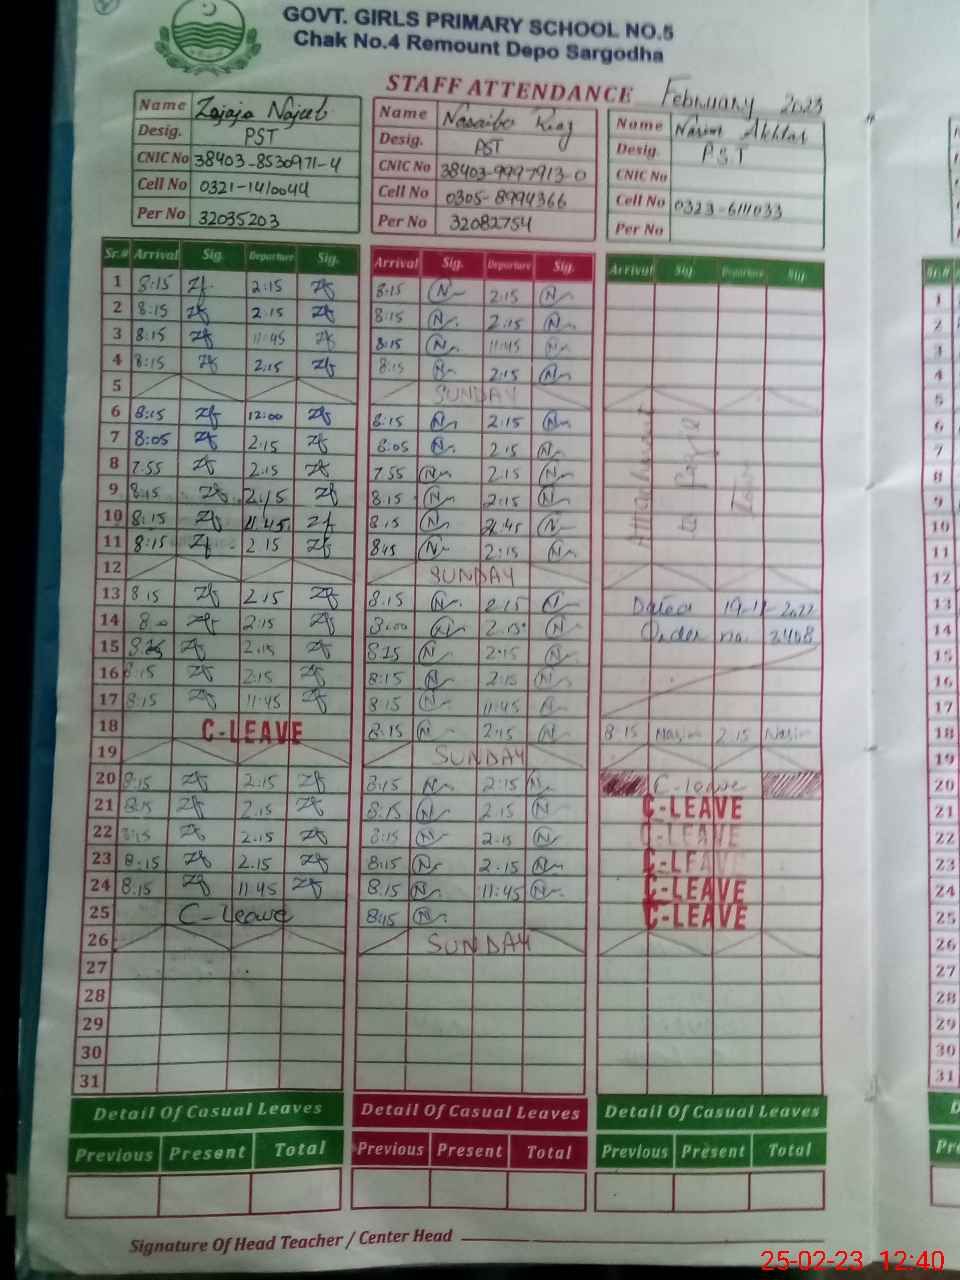 GOVT. GIRLS PRIMARY SCHOOL NO.5
Chak No.4 Remount Depo Sargodha
STAFF ATTENDANCE February 2023
Name Najeeb
Desig. PST
CNIC No 38403-8530971-4
Cell No 0321-1410044
Per No 32035203
Name
Desig. PST
CNIC No 38403-9997913-0
Cell No 0305-8994366
Per No 32082754
Name Akhtar
Desig. PST
CNIC No
Cell No 0323-6111033
Per No
Sr.# Arrival Sig. Departure Sig. Arrival Sig. Departure Sig. Arrival Sig. Departure Sig.
1 8:15 Zf 2:15 Zf 8:15 N 2:15 N
2 8:15 Zf 2:15 Zf 8:15 N 2:15 N
3 8:15 Zf 11:45 Zf 8:15 N 11:45 N
4 8:15 Zf 2:15 Zf 8:15 N 2:15 N
5 SUNDAY
6 8:15 Zf 12:00 Zf 8:15 N 2:15 N
7 8:05 Zf 2:15 Zf 8:05 N 2:15 N
8 7.55 Zf 2:15 Zf 7.55 N 2:15 N
9 8:15 Zf 2:15 Zf 8:15 N 2:15 N
10 8:15 Zf 11:45 Zf 8:15 N N
11 8:15 Zf 2:15 Zf N 2:15 N
12 SUNDAY
13 8:15 Zf 2:15 Zf 8:15 N 2:15 N Dated
14 Zf 2:15 Zf N 2:15 N Order no.
15 Zf 2:15 Zf N 2:15 N
16 8:15 Zf 2:15 Zf 8:15 N 2:15 N
17 8:15 Zf 11:45 Zf 8:15 N 11:45 N
18 C-LEAVE 8:15 N N 8:15 2:15
19 SUNDAY
20 8:15 Zf 2:15 Zf 8:15 N 2:15 N C-leave
21 8:15 Zf 2.15 Zf 8:15 N 2.15 N C-LEAVE
22 8:15 Zf 2.15 Zf 8:15 N 2.15 N C-LEAVE
23 8:15 Zf 2.15 Zf 8:15 N 2.15 N C-LEAVE
24 8:15 Zf 11:45 Zf 8:15 N 11:45 N C-LEAVE
25 C-Leave 8:15 N C-LEAVE
26 SUNDAY
27
28
29
30
31
Detail Of Casual Leaves Detail Of Casual Leaves Detail Of Casual Leaves
Previous Present Total Previous Present Total Previous Present Total
Signature Of Head Teacher / Center Head
25-02-23 12:40